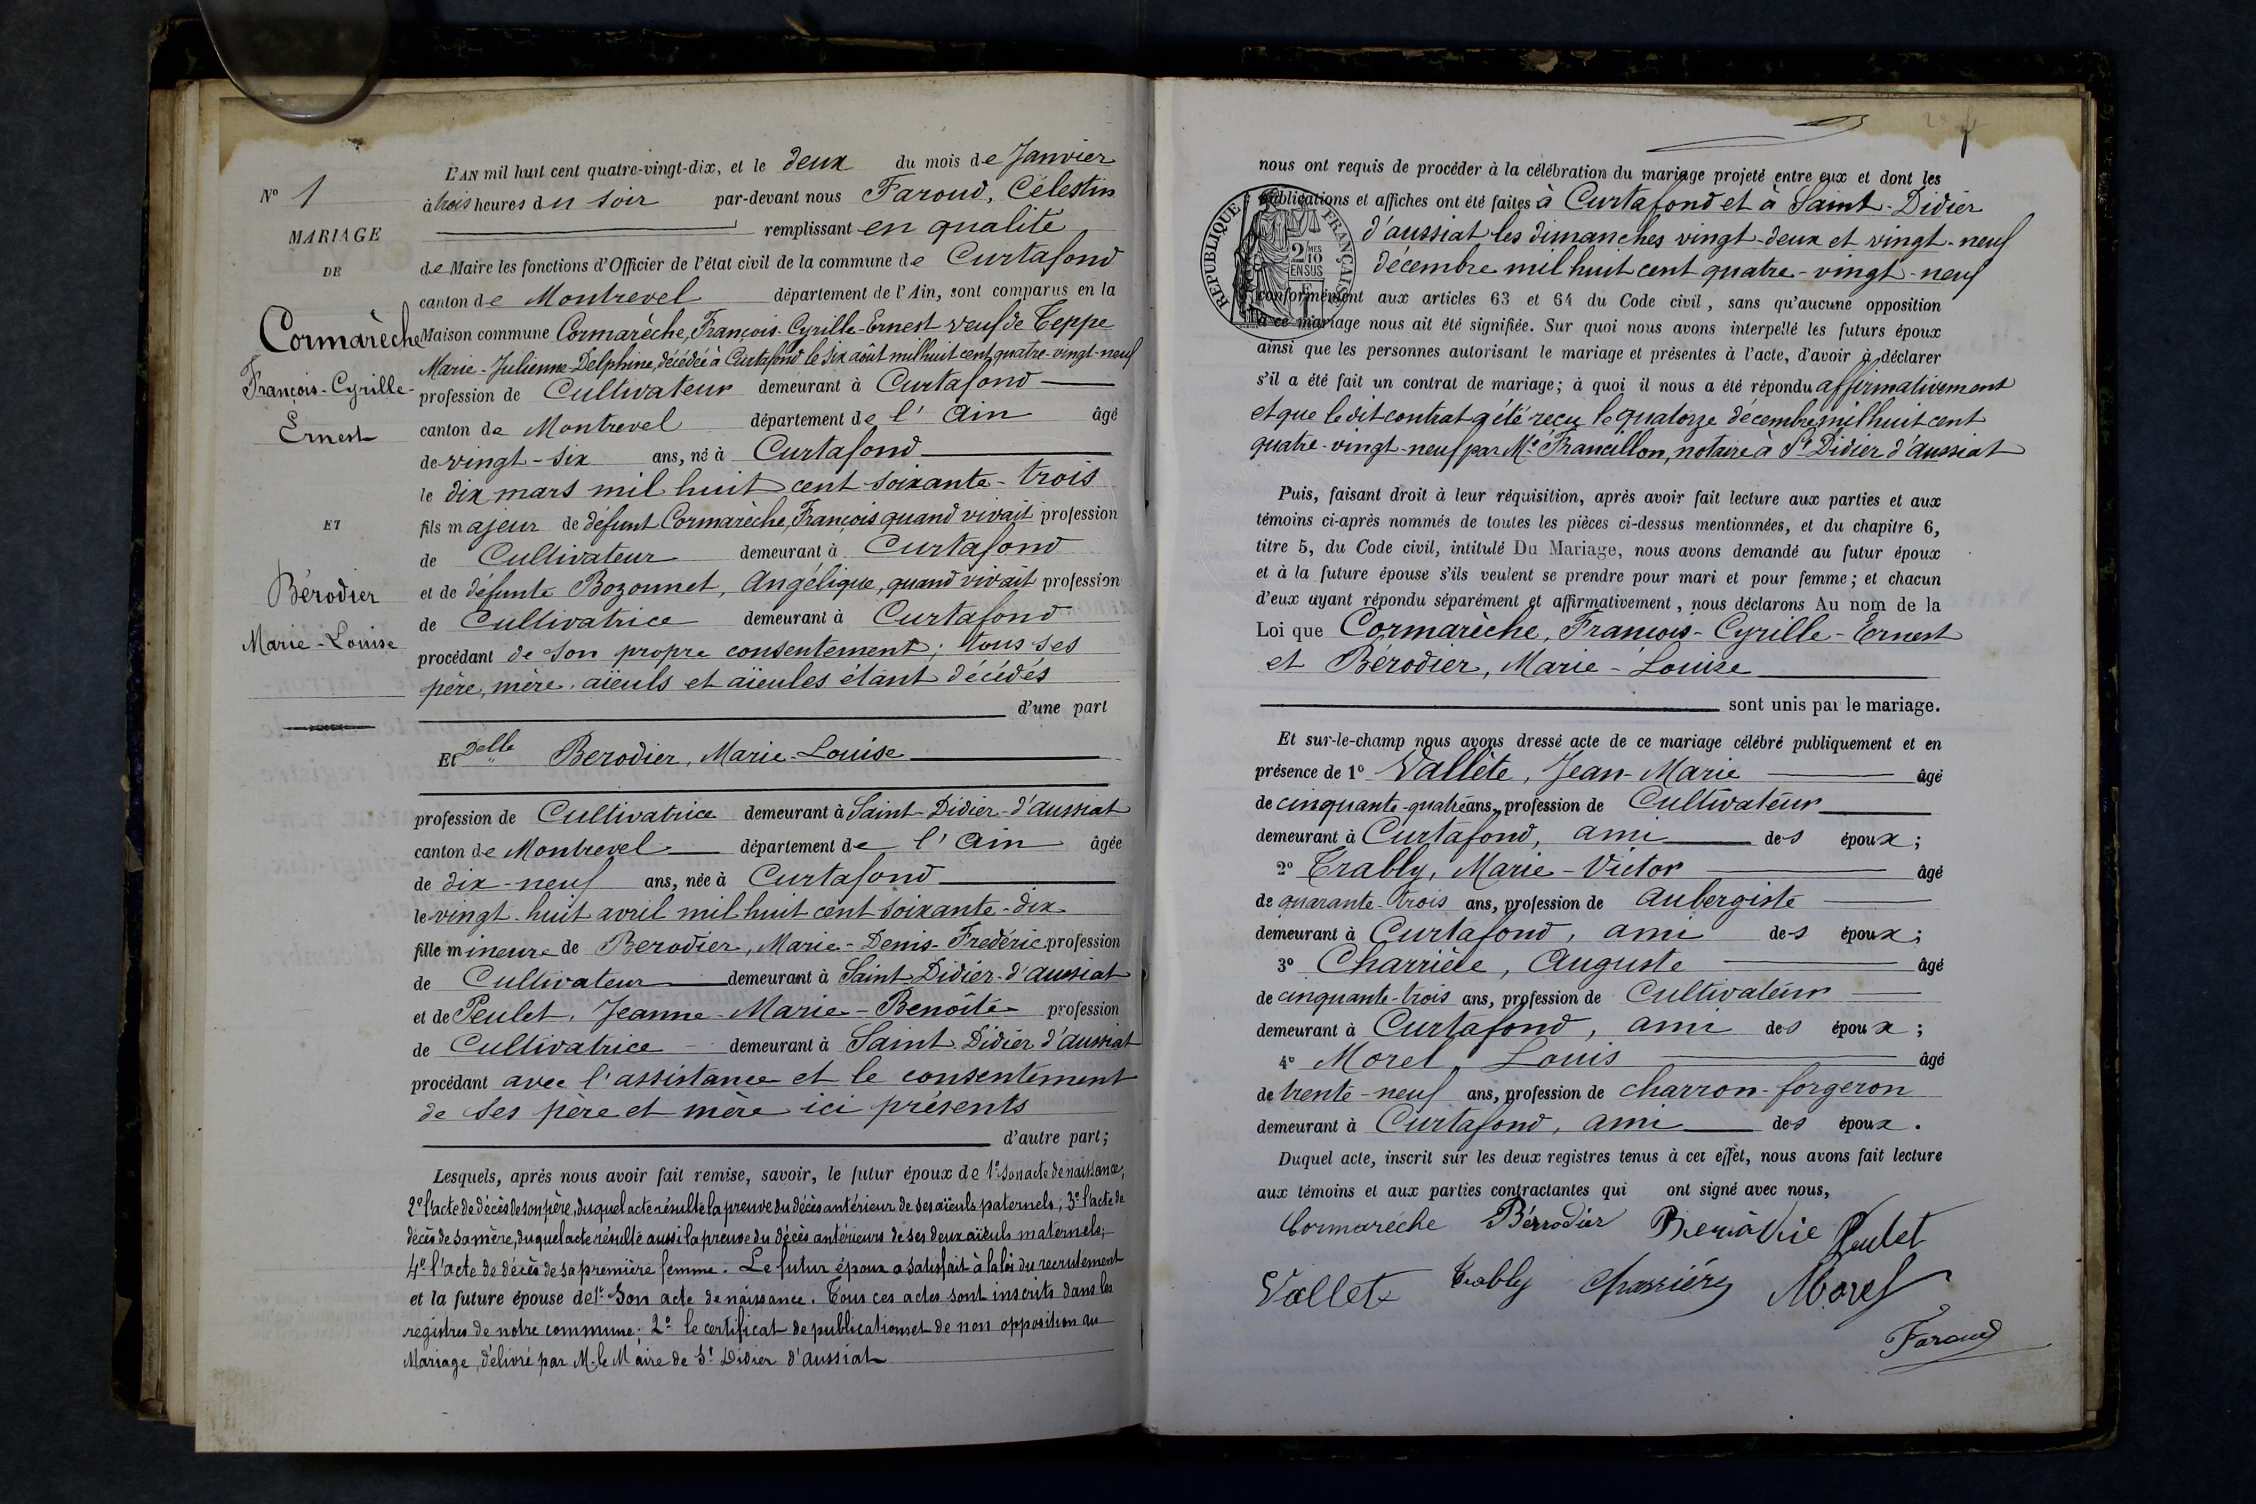 N° 1
MARIAGE
DE
Cormarèche
François-Cyrille-
Ernest
ET
Bérodier
Marie-Louise
L'AN mil huit cent quatre-vingt-dix, et le deux du mois de Janvier
à trois heures du soir par-devant nous Faroud, Célestin
remplissant en qualité
de Maire les fonctions d'Officier de l'état civil de la commune de Curtafond
canton de Montrevel département de l'Ain, sont comparus en la
Maison commune Cormarèche, François-Cyrille-Ernest veuf de Teppe
Marie-Julienne-Delphine, décédée à Curtafond le six août mil huit cent quatre-vingt-neuf
profession de Cultivateur demeurant à Curtafond
canton de Montrevel département de l'Ain âgé
de vingt-six ans, né à Curtafond
le dix mars mil huit cent soixante-trois
fils majeur de défunt Cormarèche, François quand vivait profession
de Cultivateur demeurant à Curtafond
et de défunte Bozonnet, Angélique, quand vivait profession
de Cultivatrice demeurant à Curtafond
procédant de son propre consentement; tous ses
père, mère, aïeuls et aïeules étant décédés
d'une part
Et Delle Berodier, Marie-Louise
profession de Cultivatrice demeurant à Saint-Didier-d'Aussiat
canton de Montrevel département de l'Ain âgée
de dix-neuf ans, née à Curtafond
le vingt-huit avril mil huit cent soixante-dix
fille mineure de Berodier, Marie-Denis-Fredéric profession
de Cultivateur demeurant à Saint-Didier-d'Aussiat
et de Peulet, Jeanne-Marie-Benoîte profession
de Cultivatrice demeurant à Saint Didier d'Aussiat
procédant avec l'assistance et le consentement
de ses père et mère ici présents
d'autre part;
Lesquels, après nous avoir fait remise, savoir, le futur époux de 1° son acte de naissance;
2° l'acte de décès de son père, duquel acte résulte la preuve du décès antérieur de ses aïeuls paternels; 3° l'acte de
décès de sa mère, duquel acte résulte aussi la preuve du décès antérieurs de ses deux aïeuls maternels;
4° l'acte de décès de sa première femme. Le futur époux a satisfait à la loi du recrutement
et la future épouse de 1° Son acte de naissance. Tous ces actes sont inscrits dans les
registres de notre commune; 2° le certificat de publications et de non opposition au
Mariage, délivré par M. le Maire de St Didier d'Aussiat
nous ont requis de procéder à la célébration du mariage projeté entre eux et dont les
publications et affiches ont été faites à Curtafond et à Saint-Didier
d'Aussiat les dimanches vingt-deux et vingt-neuf
décembre mil huit cent quatre-vingt-neuf
RÉPUBLIQUE FRANÇAISE
2/10MES
EN SUS
conformément aux articles 63 et 64 du Code civil, sans qu'aucune opposition
à ce mariage nous ait été signifiée. Sur quoi nous avons interpellé les futurs époux
ainsi que les personnes autorisant le mariage et présentes à l'acte, d'avoir à déclarer
s'il a été fait un contrat de mariage; à quoi il nous a été répondu affirmativement
et que le dit contrat a été reçu le quatorze décembre mil huit cent
quatre-vingt-neuf par Me Francillon, notaire à St Didier d'Aussiat
Puis, faisant droit à leur réquisition, après avoir fait lecture aux parties et aux
témoins ci-après nommés de toutes les pièces ci-dessus mentionnées, et du chapitre 6,
titre 5, du Code civil, intitulé Du Mariage, nous avons demandé au futur époux
et à la future épouse s'ils veulent se prendre pour mari et pour femme; et chacun
d'eux ayant répondu séparément et affirmativement, nous déclarons Au nom de la
Loi que Cormarèche, François-Cyrille-Ernest
et Bérodier, Marie-Louise
sont unis par le mariage.
Et sur-le-champ nous avons dressé acte de ce mariage célébré publiquement et en
présence de 1° Vallète, Jean-Marie âgé
de cinquante-quatre ans, profession de Cultivateur
demeurant à Curtafond, ami des époux;
2° Trably, Marie-Victor âgé
de quarante-trois ans, profession de Aubergiste
demeurant à Curtafond, ami des époux;
3° Charrière, Auguste âgé
de cinquante-trois ans, profession de Cultivateur
demeurant à Curtafond, ami des époux;
4° Morel, Louis âgé
de trente-neuf ans, profession de charron-forgeron
demeurant à Curtafond, ami des époux.
Duquel acte, inscrit sur les deux registres tenus à cet effet, nous avons fait lecture
aux témoins et aux parties contractantes qui ont signé avec nous,
Cormarèche Bérrodier Peulet
Vallet Trably Charrière Morel
Faroud